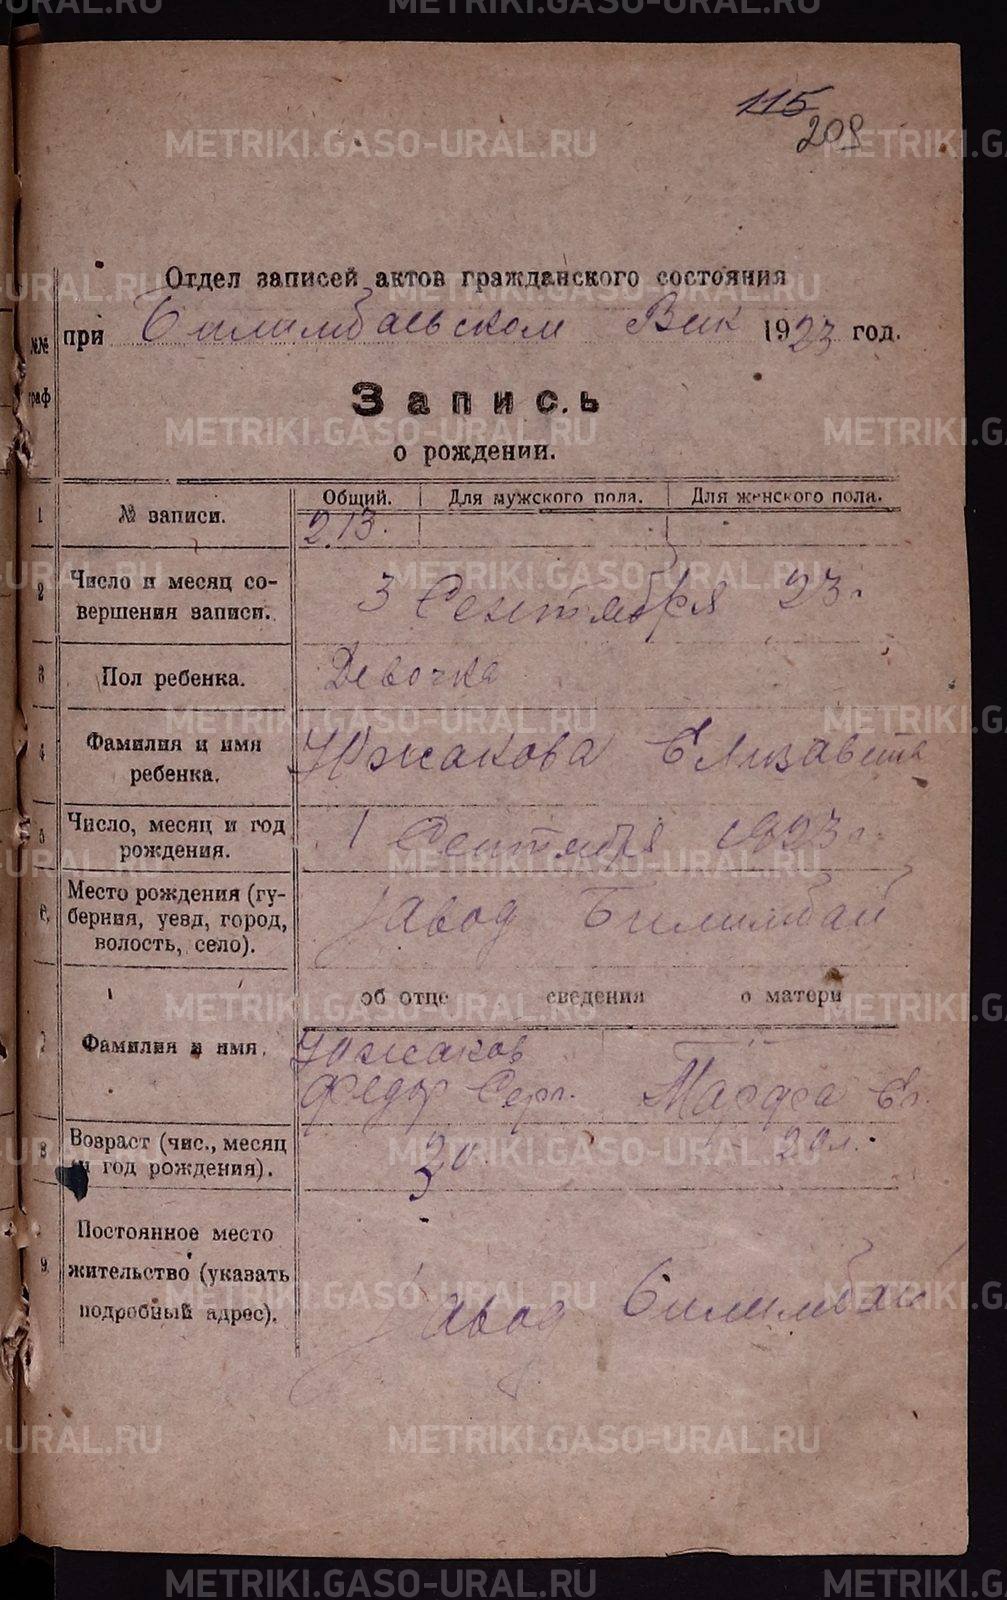 115
209
Отдел записей актов гражданского состояния
при Билимбаевском Вик 1923 год.
№№ граф
Запись
о рождении.
Общий. Для мужского пола. Для женского пола.
1 № записи. 213.
2 Число и месяц со-
вершения записи. 3 Сентября 23 г
3 Пол ребенка. Девочка
4 Фамилия и имя
ребенка. Южакова Елизавета
5 Число, месяц и год
рождения. 1 Сентября 1923 г.
6. Место рождения (гу-
берния, уезд, город,
волость, село). Завод Билимбай
об отце сведения о матери
7 Фамилия и имя. Южаков
Федор Серг. Марфа Ег.
8 Возраст (чис., месяц
и год рождения). 30. 29 л.
9. Постоянное место
жительство (указать
подробный адрес). Завод Билимбай
METRIKI.GASO-URAL.RU